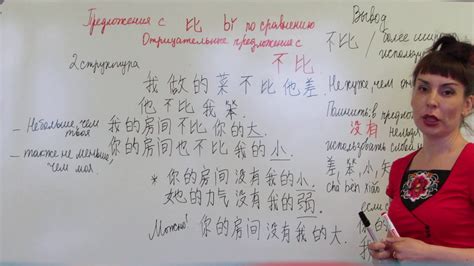 Предложения с 比 bǐ по сравнению
Отрицательные предложения с 不比
2 структура
我做的菜不比他差.
他不比我笨.
Не больше, чем твоя
我的房间不比你的大.
также не меньше, чем моя
你的房间也不比我的小.
* 你的房间没有我的小.
她的力气没有我的弱.
Можно! 你的房间没有我的大.
Вывод
不比 / более
Не хуже, чем он
Помнить: в
没有 нельзя
использовать слова
差, 笨, 小, 矮
chà bèn xiǎo
если